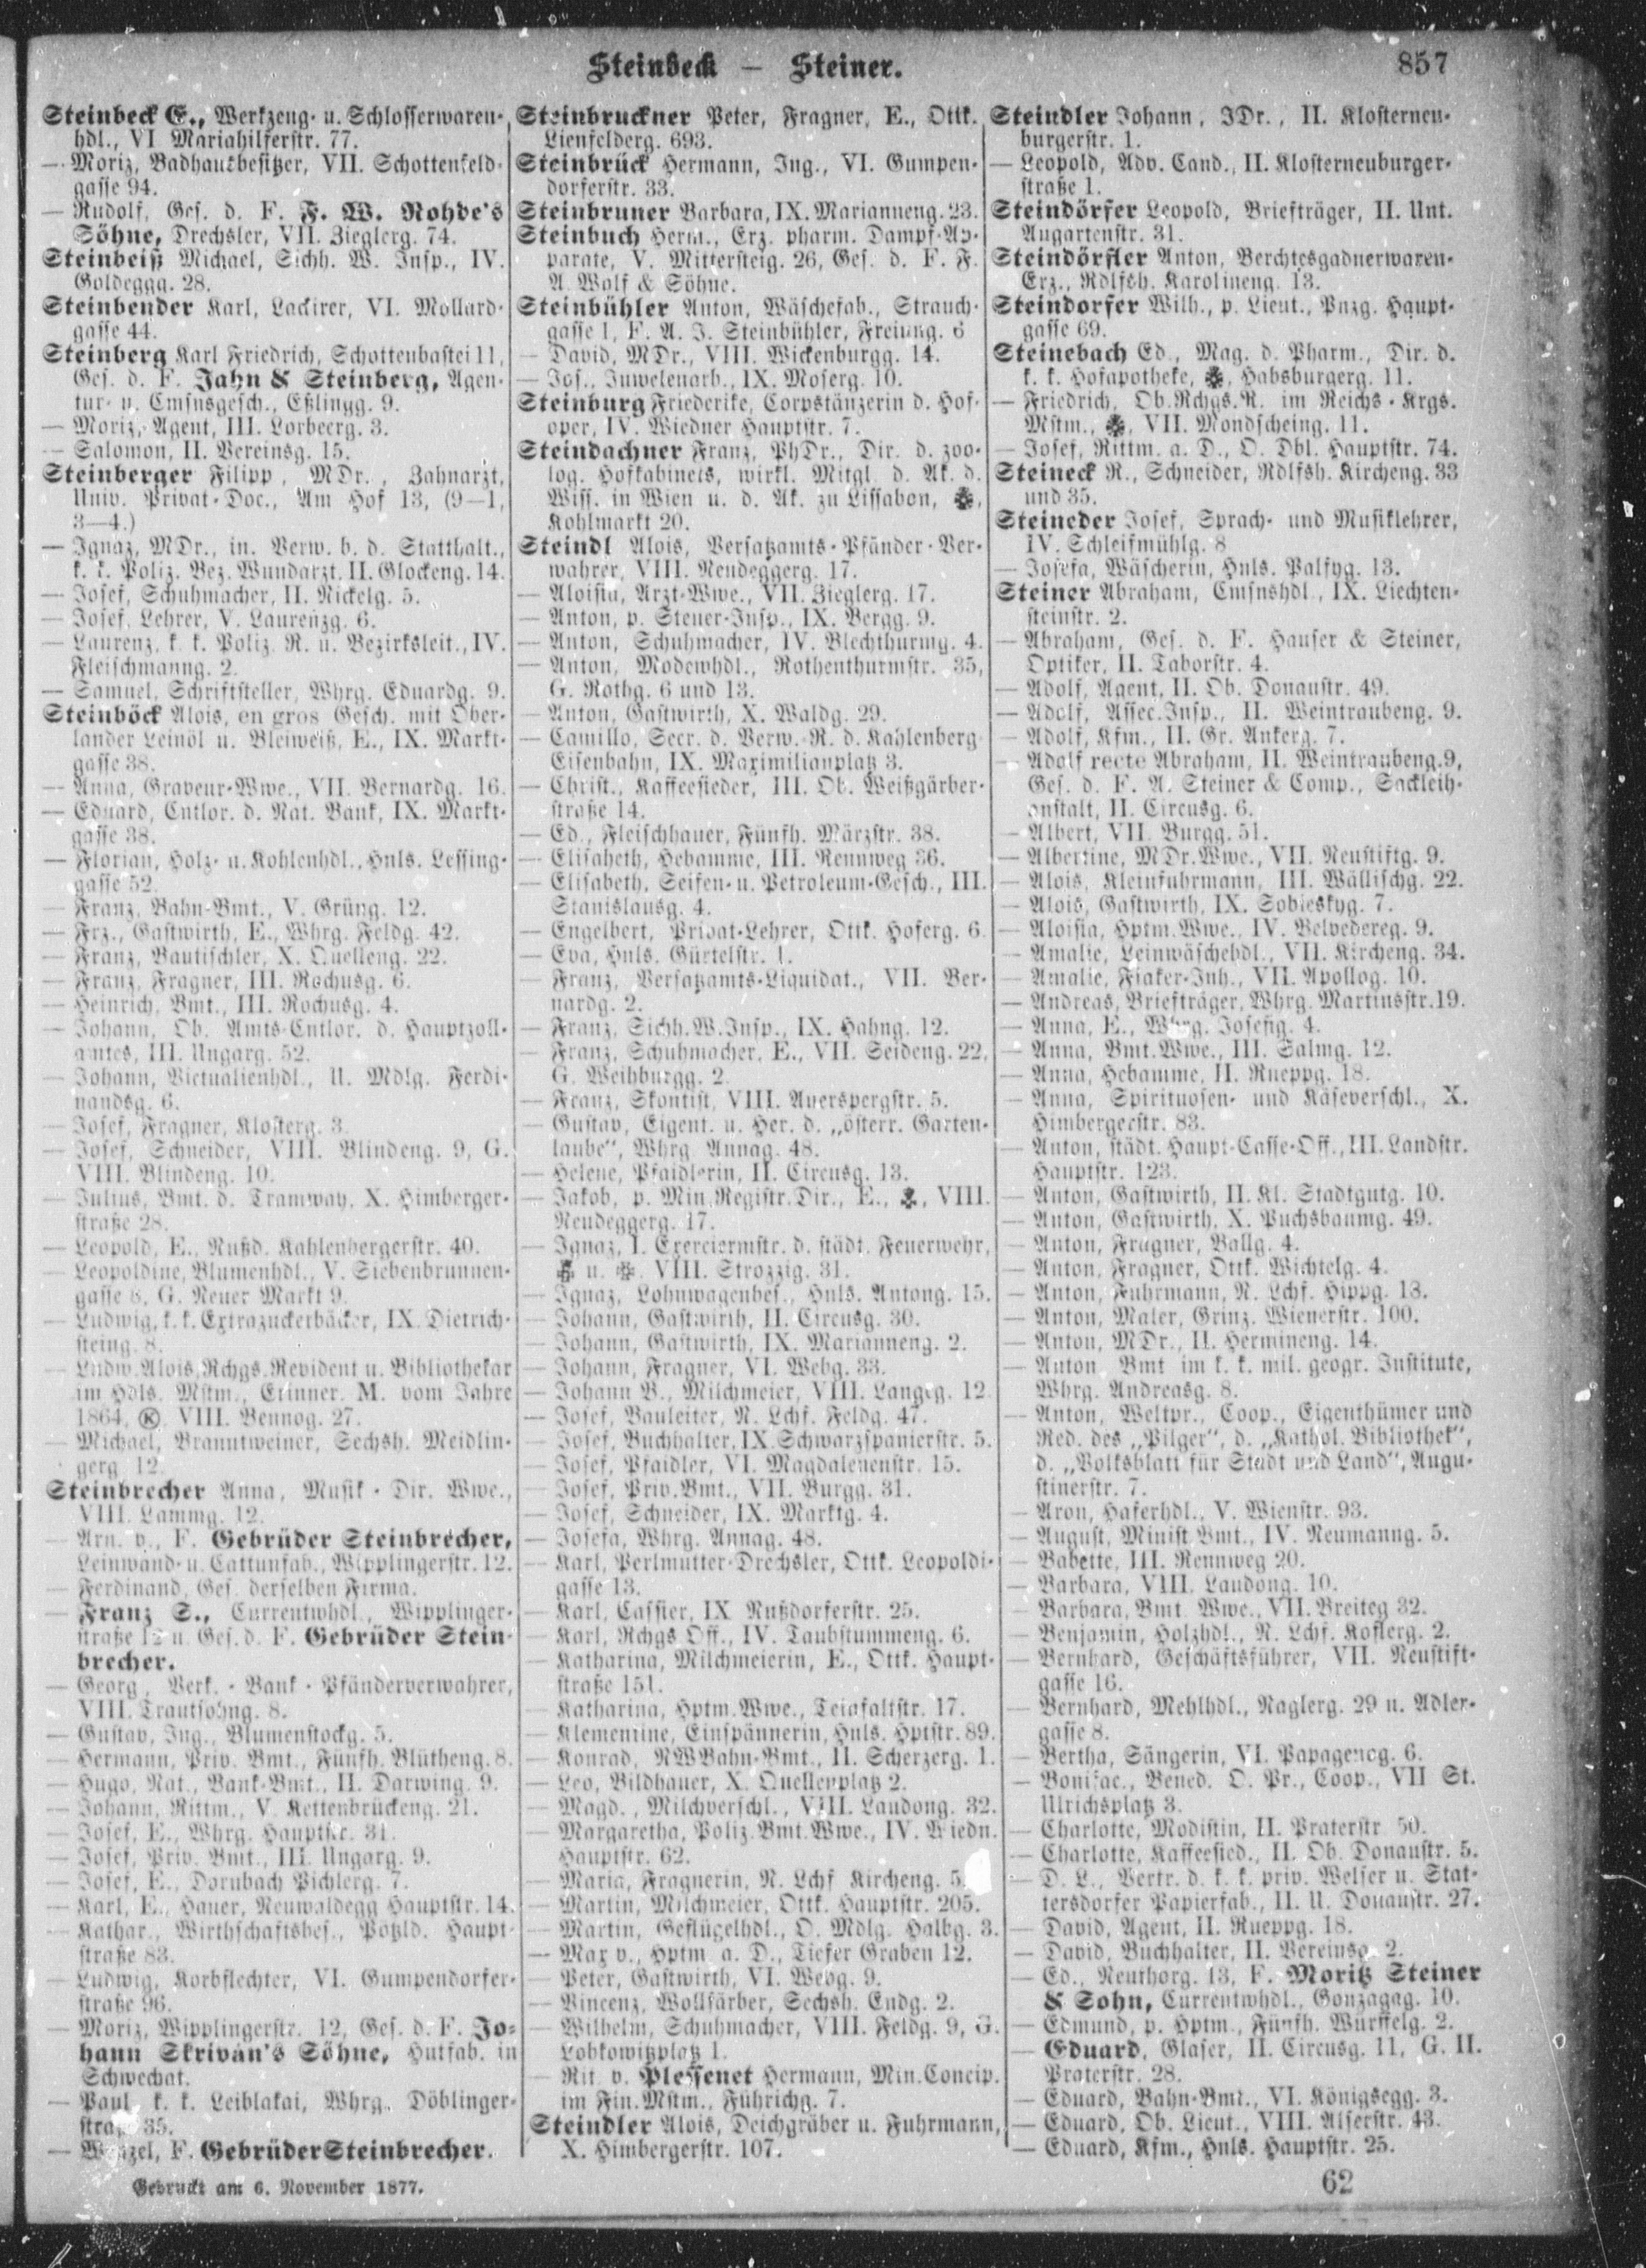 Steinbeck — Steiner.
857
Steinbeck E., Werkzeug- u. Schlosserwaren-
hdl., VI Mariahilferstr. 77.
— Moriz, Badhausbesitzer, VII. Schottenfeld-
gasse 94.
— Rudolf, Ges. d. F. F. W. Rohde's
Söhne, Drechsler, VII. Zieglerg. 74.
Steinbeiß Michael, Sichh. W. Insp., IV.
Goldeggg. 28.
Steinbender Karl, Lackirer, VI. Mollard-
gasse 44.
Steinberg Karl Friedrich, Schottenbastei 11,
Ges. d. F. Jahn & Steinberg, Agen-
tur- u. Cmsnsgesch., Eßlingg. 9.
— Moriz, Agent, III. Lorbeerg. 3.
— Salomon, II. Vereinsg. 15.
Steinberger Filipp, MDr., Zahnarzt,
Univ. Privat-Doc., Am Hof 13, (9—1,
3—4.)
— Ignaz, MDr., in. Verw. b. d. Statthalt.,
k. k. Poliz. Bez. Wundarzt. II. Glockeng. 14.
— Josef, Schuhmacher, II. Nickelg. 5.
— Josef, Lehrer, V. Laurenzg. 6.
— Laurenz, k. k. Poliz. R. u. Bezirksleit., IV.
Fleischmanng. 2.
— Samuel, Schriftsteller, Whrg. Eduardg. 9.
Steinböck Alois, en gros Gesch. mit Ober-
lander Leinöl u. Bleiweiß, E., IX. Markt-
gasse 38.
— Anna, Graveur-Wwe., VII. Bernardg. 16.
— Eduard, Cntlor. d. Nat. Bank, IX. Markt-
gasse 38.
— Florian, Holz- u. Kohlenhdl., Hnls. Lessing-
gasse 52.
— Franz, Bahn-Bmt., V. Grüng. 12.
— Frz., Gastwirth, E., Whrg. Feldg. 42.
— Franz, Bautischler, X. Quelleng. 22.
— Franz, Fragner, III. Rochusg. 6.
— Heinrich, Bmt., III. Rochusg. 4.
— Johann, Ob. Amts-Cntlor. d. Hauptzoll-
amtes, III. Ungarg. 52.
— Johann, Victualienhdl., U. Mdlg. Ferdi-
nandsg. 6.
— Josef, Fragner, Klosterg. 3.
— Josef, Schneider, VIII. Blindeng. 9, G.
VIII. Blindeng. 10.
— Julius, Bmt. d. Tramway, X. Himberger-
straße 28.
— Leopold, E., Nußd. Kahlenbergerstr. 40.
— Leopoldine, Blumenhdl., V. Siebenbrunnen-
gasse 6, G. Neuer Markt 9.
— Ludwig, k. k. Extrazuckerbäcker, IX. Dietrich-
steing. 8.
— Ludw. Alois, Rchgs. Revident u. Bibliothekar
im Hdls. Mstm., Erinner. M. vom Jahre
1864, Ⓚ, VIII. Bennog. 27.
— Michael, Branntweiner, Sechsh. Meidlin-
gerg. 12.
Steinbrecher Anna, Musik-Dir. Wwe.,
VIII. Lammg. 12.
— Arn. v., F. Gebrüder Steinbrecher,
Leinwand- u. Cattunfab., Wipplingerstr. 12.
— Ferdinand, Ges. derselben Firma.
— Franz S., Currentwhdl., Wipplinger-
straße 12 u. Ges. d. F. Gebrüder Stein-
brecher.
— Georg, Verk.-Bank-Pfänderverwahrer,
VIII. Trautsohng. 8.
— Gustav, Ing., Blumenstockg. 5.
— Hermann, Priv. Bmt., Fünfh. Blütheng. 8.
— Hugo, Nat., Bank-Bmt., II. Darwing. 9.
— Johann, Rittm., V. Kettenbrückeng. 21.
— Josef, E., Whrg. Hauptstr. 31.
— Josef, Priv. Bmt., III. Ungarg. 9.
— Josef, E., Dornbach Pichlerg. 7.
— Karl, E., Hauer, Neuwaldegg Hauptstr. 14.
— Kathar., Wirthschaftsbes., Pötzld. Haupt-
straße 83.
— Ludwig, Korbflechter, VI. Gumpendorfer-
straße 96.
— Moriz, Wipplingerstr. 12, Ges. d. F. Jo-
hann Skriván's Söhne, Hutfab. in
Schwechat.
— Paul, k. k. Leiblakai, Whrg. Döblinger-
straße 35.
— Wenzel, F. Gebrüder Steinbrecher.
Gedruckt am 6. November 1877.
Steinbruckner Peter, Fragner, E., Ottk.
Lienfelderg. 693.
Steinbrück Hermann, Ing., VI. Gumpen-
dorferstr. 33.
Steinbruner Barbara, IX. Marianneng. 23.
Steinbuch Herm., Erz. pharm. Dampf-Ap-
parate, V. Mittersteig. 26, Ges. d. F. F.
A. Wolf & Söhne.
Steinbühler Anton, Wäschefab., Strauch-
gasse 1, F. A. J. Steinbühler, Freiung. 6
— David, MDr., VIII. Wickenburgg. 14.
— Jos., Juwelenarb., IX. Moserg. 10.
Steinburg Friederike, Corpstänzerin d. Hof-
oper, IV. Wiedner Hauptstr. 7.
Steindachner Franz, PhDr., Dir. d. zoo-
log. Hofkabinets, wirkl. Mitgl. d. Ak. d.
Wiss. in Wien u. d. Ak. zu Lissabon,
Kohlmarkt 20.
Steindl Alois, Versatzamts-Pfänder-Ver-
wahrer, VIII. Neudeggerg. 17.
— Aloisia, Arzt-Wwe., VII. Zieglerg. 17.
— Anton, p. Steuer-Insp., IX. Bergg. 9.
— Anton, Schuhmacher, IV. Blechthurmg. 4.
— Anton, Modewhdl., Rothenthurmstr. 35,
G. Rothg. 6 und 13.
— Anton, Gastwirth, X. Waldg. 29.
— Camillo, Secr. d. Verw.-R. d. Kahlenberg-
Eisenbahn, IX. Maximilianplatz 3.
— Christ., Kaffeesieder, III. Ob. Weißgärber-
straße 14.
— Ed., Fleischhauer, Fünfh. Märzstr. 38.
— Elisabeth, Hebamme, III. Rennweg 36.
— Elisabeth, Seifen- u. Petroleum-Gesch., III.
Stanislausg. 4.
— Engelbert, Privat-Lehrer, Ottk. Hoferg. 6.
— Eva, Hnls. Gürtelstr. 1.
— Franz, Versatzamts-Liquidat., VII. Ber-
nardg. 2.
— Franz, Sichh. W. Insp., IX. Hahng. 12.
— Franz, Schuhmacher, E., VII. Seideng. 22,
G. Weihburgg. 2.
— Franz, Skontist, VIII. Auerspergstr. 5.
— Gustav, Eigent. u. Her. d. „österr. Garten-
laube“, Whrg. Annag. 48.
— Helene, Pfaidlerin, II. Circusg. 13.
— Jakob, p. Min. Registr. Dir., E., VIII.
Neudeggerg. 17.
— Ignaz, I. Exerciermstr. d. städt. Feuerwehr,
u. VIII. Strozzig. 31.
— Ignaz, Lohnwagenbes., Hnls. Antong. 15.
— Johann, Gastwirth, II. Circusg. 30.
— Johann, Gastwirth, IX. Marianneng. 2.
— Johann, Fragner, VI. Webg. 33.
— Johann B., Milchmeier, VIII. Langeg. 12.
— Josef, Bauleiter, N. Lchf. Feldg. 47.
— Josef, Buchhalter, IX. Schwarzspanierstr. 5.
— Josef, Pfaidler, VI. Magdalenenstr. 15.
— Josef, Priv. Bmt., VII. Burgg. 31.
— Josef, Schneider, IX. Marktg. 4.
— Josefa, Whrg. Annag. 48.
— Karl, Perlmutter-Drechsler, Ottk. Leopoldi-
gasse 13.
— Karl, Cassier, IX Nußdorferstr. 25.
— Karl, Rchgs Off., IV. Taubstummeng. 6.
— Katharina, Milchmeierin, E., Ottk. Haupt-
straße 151.
— Katharina, Hptm. Wwe., Teinfaltstr. 17.
— Klementine, Einspännerin, Hnls. Hptstr. 89.
— Konrad, NWBahn-Bmt., II. Scherzerg. 1.
— Leo, Bildhauer, X. Quellenplatz 2.
— Magd., Milchverschl., VIII. Laudong. 32.
— Margaretha, Poliz. Bmt. Wwe., IV. Wiedn.
Hauptstr. 62.
— Maria, Fragnerin, N. Lchf Kircheng. 5.
— Martin, Milchmeier, Ottk. Hauptstr. 205.
— Martin, Geflügelhdl., O. Mdlg. Halbg. 3.
— Max v., Hptm. a. D., Tiefer Graben 12.
— Peter, Gastwirth, VI. Webg. 9.
— Vincenz, Wollfärber, Sechsh. Endg. 2.
— Wilhelm, Schuhmacher, VIII. Feldg. 9, G.
Lobkowitzplatz 1.
— Rit. v. Plessenet Hermann, Min. Concip.
im Fin. Mstm., Führichg. 7.
Steindler Alois, Deichgräber u. Fuhrmann,
X. Himbergerstr. 107.
Steindler Johann, JDr., II. Klosterneu-
burgerstr. 1.
— Leopold, Adv. Cand., II. Klosterneuburger-
straße 1.
Steindörfer Leopold, Briefträger, II. Unt.
Augartenstr. 31.
Steindörfler Anton, Berchtesgadnerwaren-
Erz., Rdlfsh. Karolineng. 13.
Steindorfer Wilh., p. Lieut., Pnzg. Haupt-
gasse 69.
Steinebach Ed., Mag. d. Pharm., Dir. d.
k. k. Hofapotheke, Habsburgerg. 11.
— Friedrich, Ob. Rchgs. R. im Reichs-Krgs.
Mstm., VII. Mondscheing. 11.
— Josef, Rittm. a. D., O. Dbl. Hauptstr. 74.
Steineck R., Schneider, Rdlfsh. Kircheng. 33
und 35.
Steineder Josef, Sprach- und Musiklehrer,
IV. Schleifmühlg. 8
— Josefa, Wäscherin, Hnls. Palfyg. 13.
Steiner Abraham, Cmsnshdl., IX. Liechten-
steinstr. 2.
— Abraham, Ges. d. F. Hauser & Steiner,
Optiker, II. Taborstr. 4.
— Adolf, Agent, II. Ob. Donaustr. 49.
— Adolf, Assec. Insp., II. Weintraubeng. 9.
— Adolf, Kfm., II. Gr. Ankerg. 7.
— Adolf recte Abraham, II. Weintraubeng. 9,
Ges. d. F. A. Steiner & Comp., Sackleih-
anstalt, II. Circusg. 6.
— Albert, VII. Burgg. 51.
— Albertine, MDr. Wwe., VII. Neustiftg. 9.
— Alois, Kleinfuhrmann, III. Wällischg. 22.
— Alois, Gastwirth, IX. Sobieskyg. 7.
— Aloisia, Hptm. Wwe., IV. Belvedereg. 9.
— Amalie, Leinwäschehdl., VII. Kircheng. 34.
— Amalie, Fiaker-Inh., VII. Apollog. 10.
— Andreas, Briefträger, Whrg. Martinsstr. 19.
— Anna, E., Whrg. Josefig. 4.
— Anna, Bmt. Wwe., III. Salmg. 12.
— Anna, Hebamme, II. Rueppg. 18.
— Anna, Spirituosen- und Käseverschl., X.
Himbergerstr. 83.
— Anton, städt. Haupt-Casse-Off., III. Landstr.
Hauptstr. 123.
— Anton, Gastwirth, II. Kl. Stadtgutg. 10.
— Anton, Gastwirth, X. Puchsbaumg. 49.
— Anton, Fragner, Ballg. 4.
— Anton, Fragner, Ottk. Wichtelg. 4.
— Anton, Fuhrmann, N. Lchf. Hippg. 13.
— Anton, Maler, Grinz. Wienerstr. 100.
— Anton, MDr., II. Hermineng. 14.
— Anton, Bmt im k. k. mil. geogr. Institute,
Whrg. Andreasg. 8.
— Anton, Weltpr., Coop., Eigenthümer und
Red. des „Pilger“, d. „Kathol. Bibliothek“,
d. „Volksblatt für Stadt und Land“, Augu-
stinerstr. 7.
— Aron, Haferhdl., V. Wienstr. 93.
— August, Minist. Bmt., IV. Neumanng. 5.
— Babette, III. Rennweg 20.
— Barbara, VIII. Laudong. 10.
— Barbara, Bmt. Wwe., VII. Breiteg 32.
— Benjamin, Holzhdl., N. Lchf. Koflerg. 2.
— Bernhard, Geschäftsführer, VII. Neustift-
gasse 16.
— Bernhard, Mehlhdl., Naglerg. 29 u. Adler-
gasse 8.
— Bertha, Sängerin, VI. Papagenog. 6.
— Bonifac., Bened. O. Pr., Coop., VII St.
Ulrichsplatz 3.
— Charlotte, Modistin, II. Praterstr 50.
— Charlotte, Kaffeesied., II. Ob. Donaustr. 5.
— D. L., Vertr. d. k. k. priv. Welser u. Stat-
tersdorfer Papierfab., II. U. Donaustr. 27.
— David, Agent, II. Rueppg. 18.
— David, Buchhalter, II. Vereinsg. 2.
— Ed., Neuthorg. 13, F. Moritz Steiner
& Sohn, Currentwhdl., Gonzagag. 10.
— Edmund, p. Hptm., Fünfh. Würffelg. 2.
— Eduard, Glaser, II. Circusg. 11, G. II.
Praterstr. 28.
— Eduard, Bahn-Bmt., VI. Königsegg. 3.
— Eduard, Ob. Lieut., VIII. Alserstr. 43.
— Eduard, Kfm., Hnls. Hauptstr. 25.
62